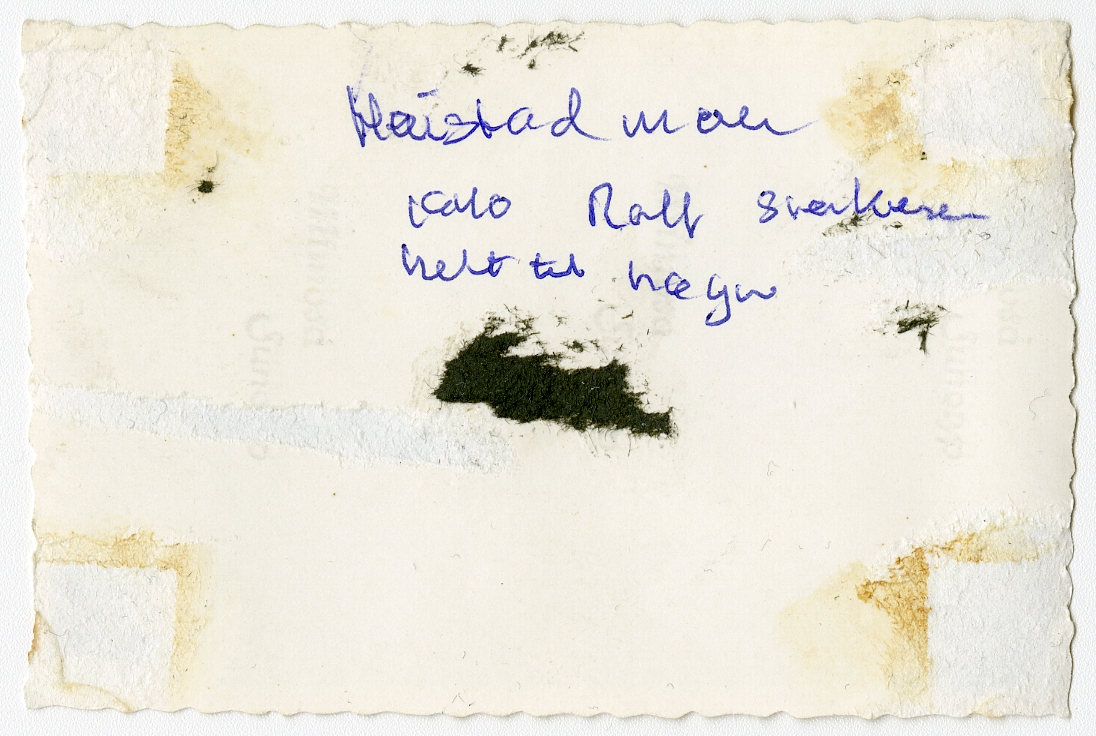 Heistad moen
Kalo Rolf Sverkesen
helt til høgre